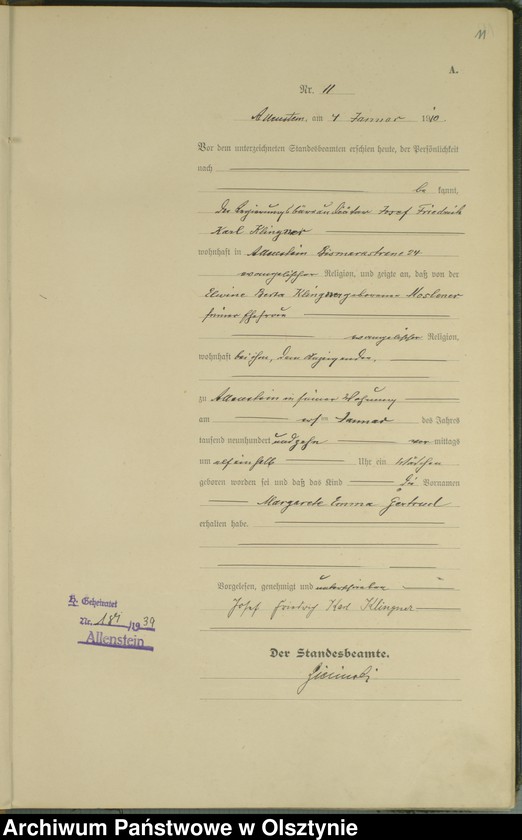 11
A.
Nr. 11
Allenstein, am 4 Januar 1910
Vor dem unterzeichneten Standesbeamten erschien heute, der Persönlichkeit
nach
be kannt,
Der Josef Friedrich
Karl Klingner
wohnhaft in Allenstein Bismarckstrasse 24
evangelischer Religion, und zeigte an, daß von der
Elwine Berta Klingner geborenen
seiner Ehefrau
evangelischer Religion,
wohnhaft bei ihm, dem Anzeigenden,
zu Allenstein in seiner Wohnung
am Januar des Jahres
tausend neunhundert und zehn vor mittags
um elf einhalb Uhr ein Mädchen
geboren worden sei und daß das Kind die Vornamen
Margarete Emma Gertrud
erhalten habe.
Vorgelesen, genehmigt und unterschrieben
Josef Friedrich Karl Klingner
Geheiratet
Nr. 181/1939
Allenstein
Der Standesbeamte.
Archiwum Państwowe w Olsztynie